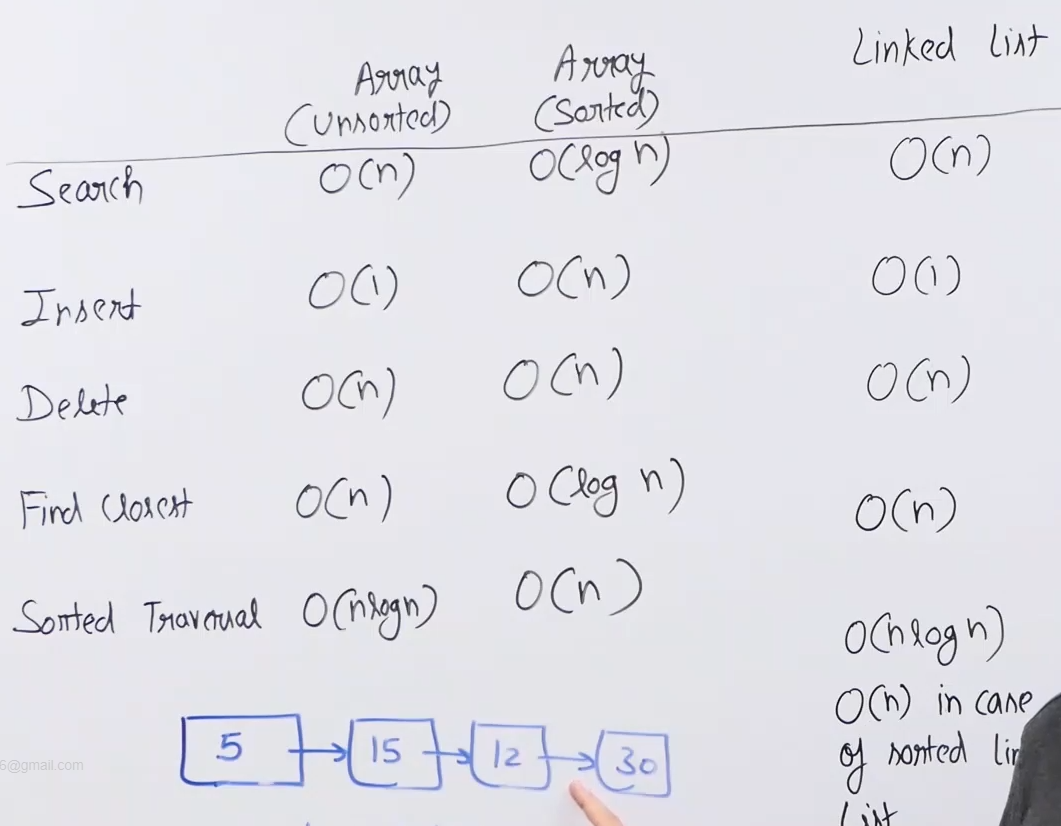 Array (Unsorted) Array (Sorted) Linked List
Search O(n) O(log n) O(n)
Insert O(1) O(n) O(1)
Delete O(n) O(n) O(n)
Find Closest O(n) O(log n) O(n)
Sorted Traversal O(nlogn) O(n) O(nlogn)
O(n) in case
of sorted
List
5 15 12 30
6@gmail.com